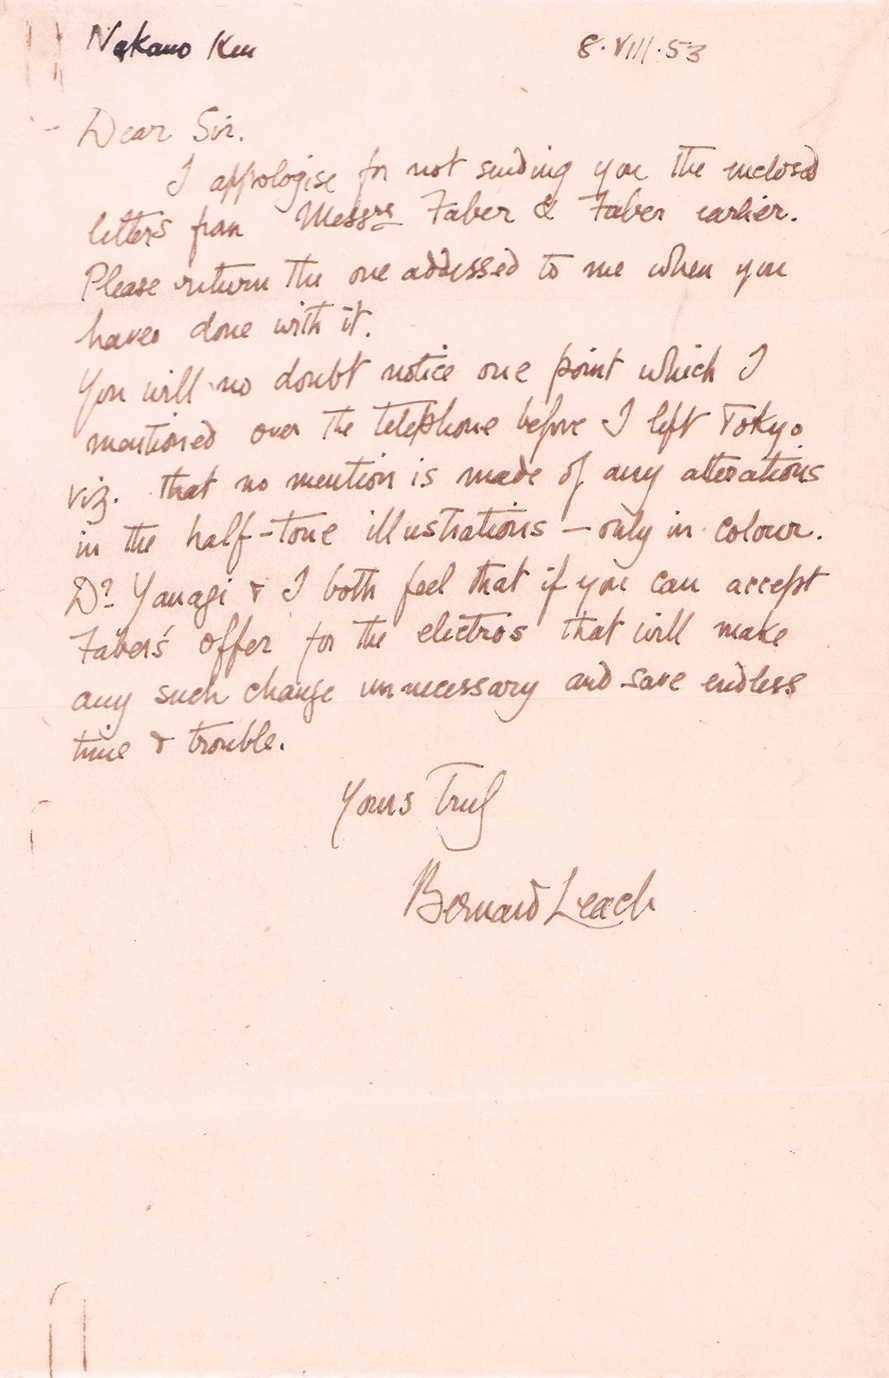 Nakano Ken 8.VIII.53
Dear Sir.
I appologise for not sending you the enclosed
letters from Messrs Faber & Faber earlier.
Please return the one addressed to me when you
have done with it.
You will no doubt notice one point which I
mentioned over the telephone before I left Tokyo
viz. that no mention is made of any alterations
in the half-tone illustrations – only in colour.
Dr Yanagi & I both feel that if you can accept
Fabers' offer for the electros that will make
any such change unnecessary and save endless
time & trouble.
Yours Truly
Bernard Leach